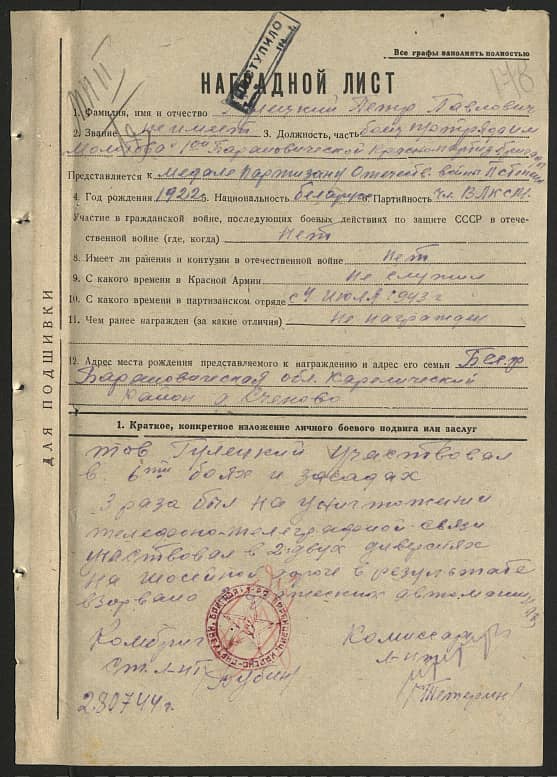 Все графы наполнять полностью
ПОСТУПИЛО
148
НАГРАДНОЙ ЛИСТ
1. Фамилия, имя и отчество Гулецкий Петр Павлович
2. Звание не имеет 3. Должность, часть боец п/отряда им
Молотова 1ой Барановической Краснопартиз бригады
Представляется к медале Партизану Отечеств. война II степени
4. Год рождения 1922 г. Национальность беларус Партийность чл. ВЛКСМ
Участие в гражданской войне, последующих боевых действиях по защите СССР в отече-
ственной войне (где, когда) Нет
8. Имеет ли ранения и контузии в отечественной войне Нет
9. С какого времени в Красной Армии Не служил
10. С какого времени в партизанском отряде с 4 июля 1943 г
11. Чем ранее награжден (за какие отличия) Не награждал
12. Адрес места рождения представляемого к награждению и адрес его семьи
Барановическая обл. Кареличский
район д
ДЛЯ ПОДШИВКИ
1. Краткое, конкретное изложение личного боевого подвига или заслуг
тов Гулецкий участвовал
в 6ти боях и засадах
3 раза был на уничтожении
телефоно-телеграфной связи
участвовал в 2 двух диверсиях
на шоссейной дороге в результате
взорвано автомашин
Комбриг
Комиссар
ст. л-нт
л-нт
280744 г.